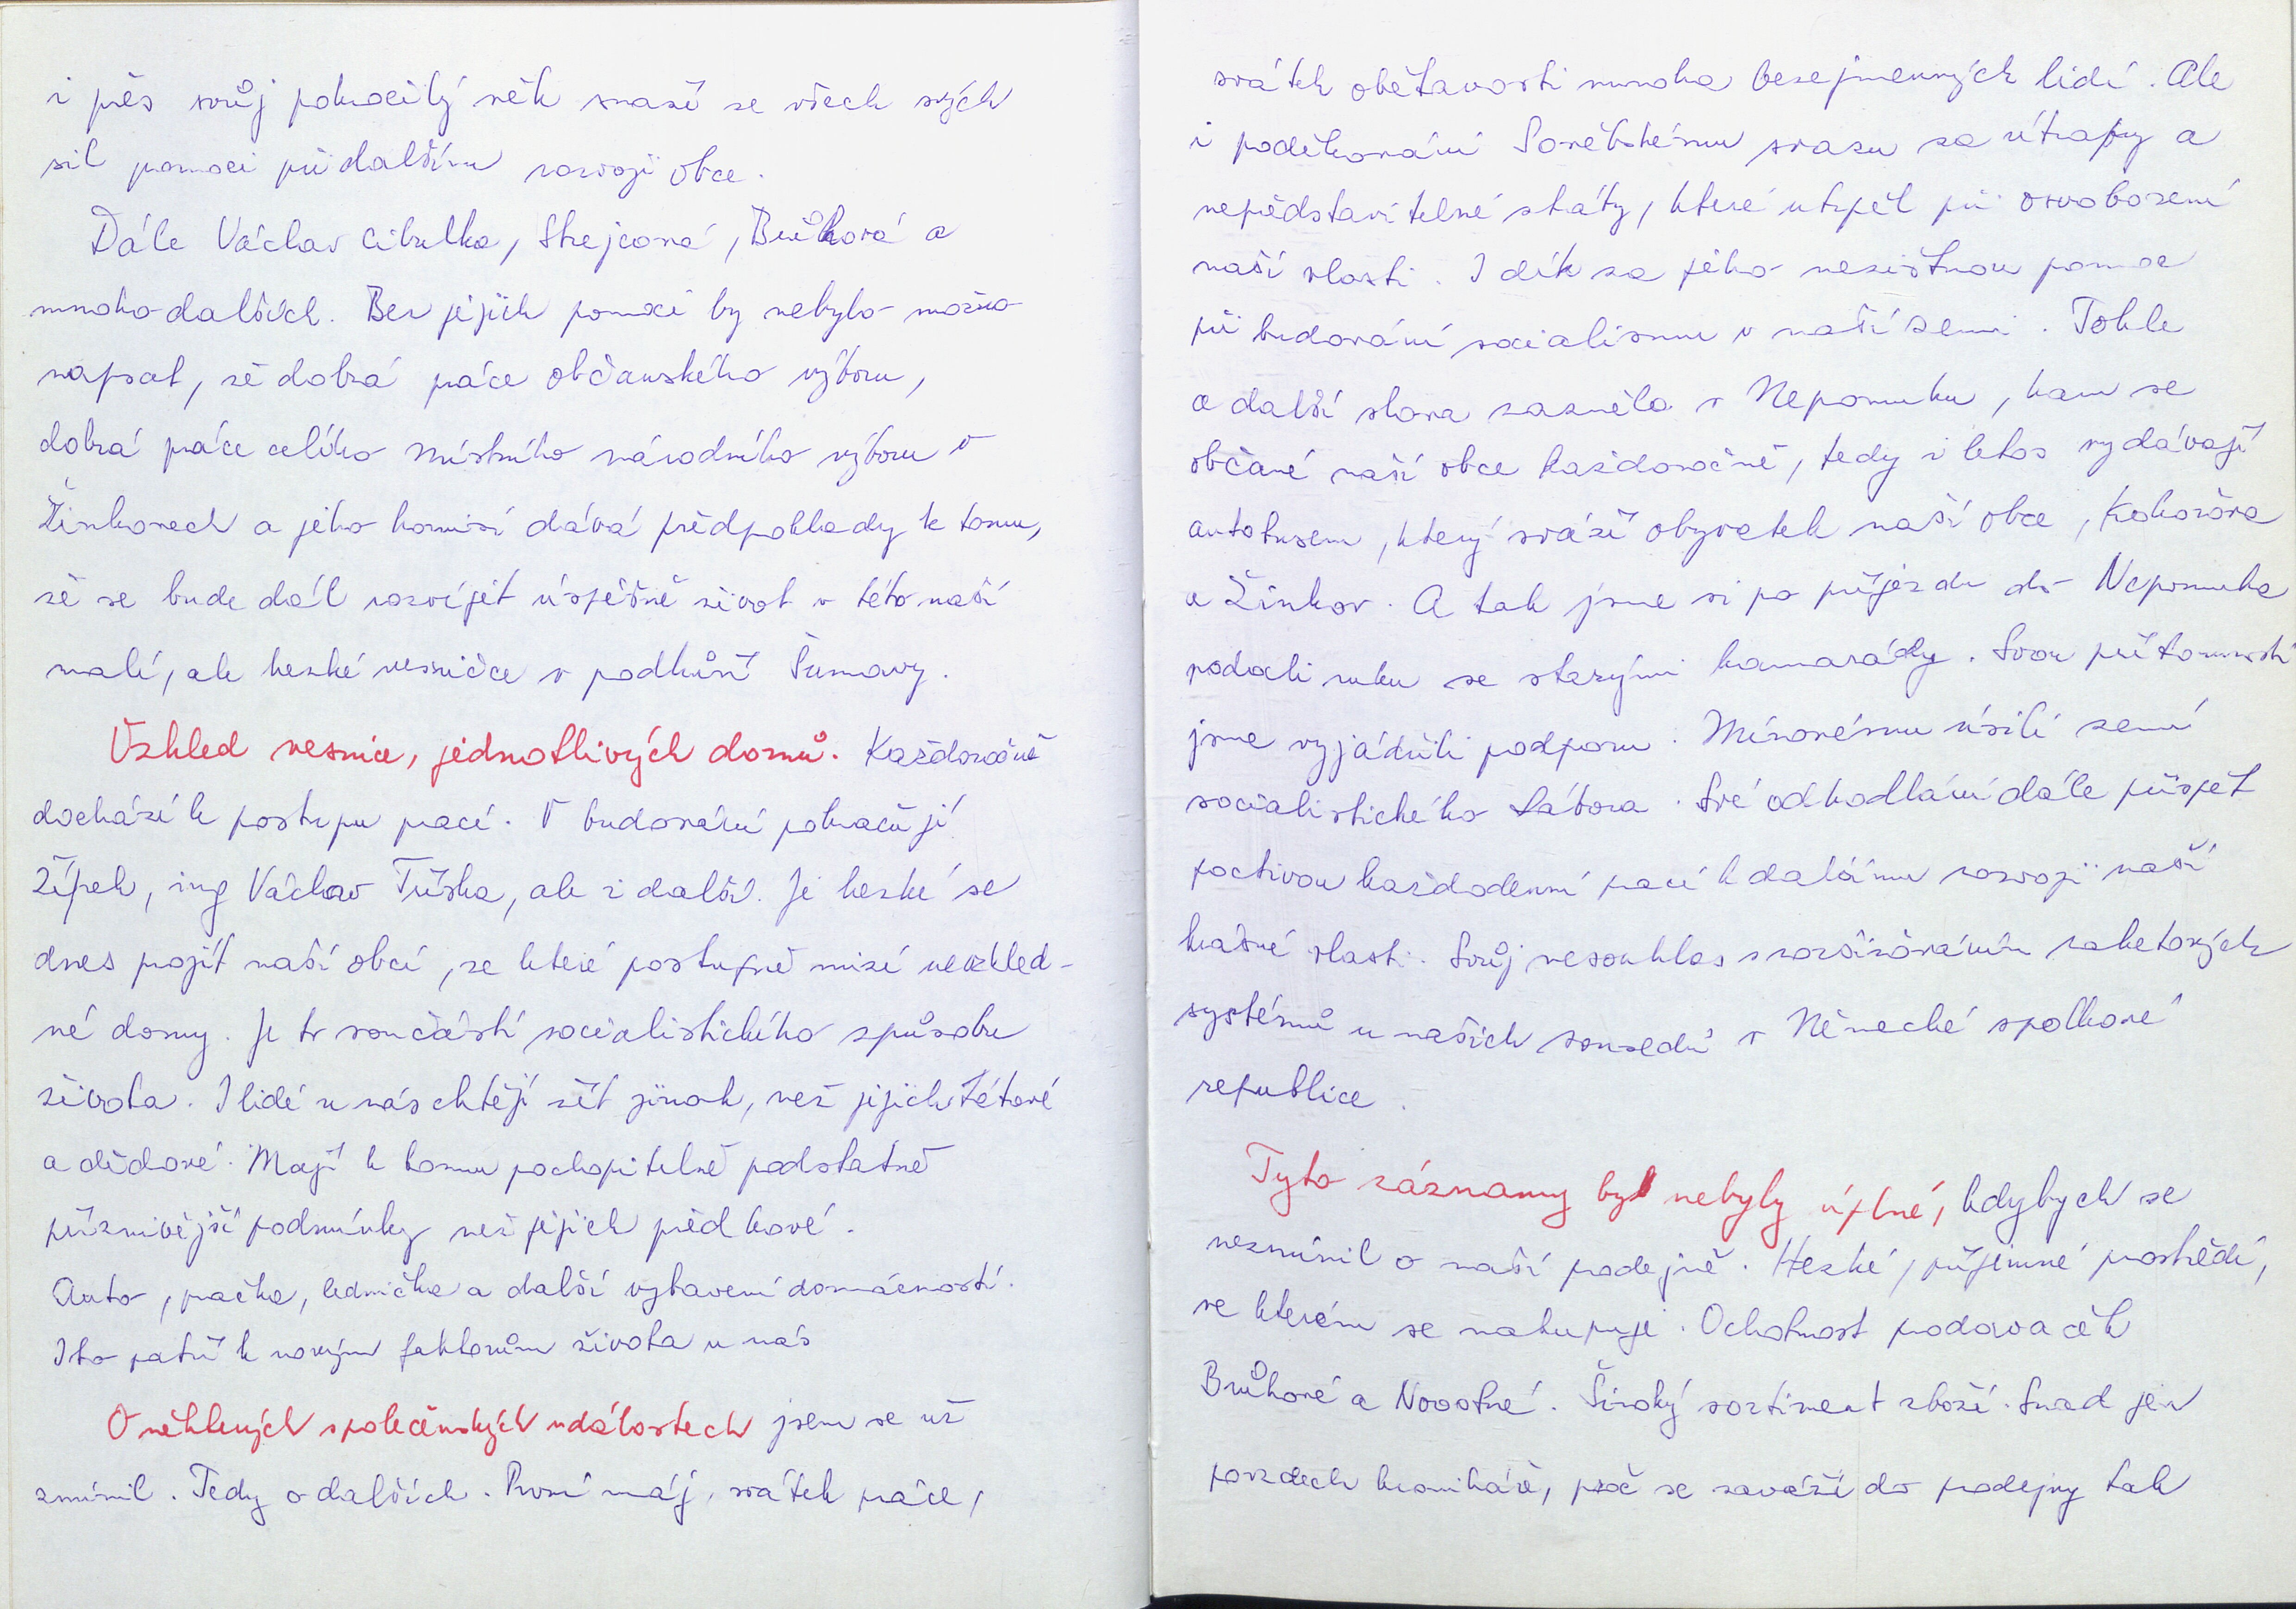 i přes svůj pokročilý věk snaží se všech svých
sil pomoci při dalším rozvoji obce.
Dále Václav Cibulka, Strejcová, Brůhová a
mnoho dalších. Bez jejich pomoci by nebylo možno
napsat, že dobrá práce občanského výboru,
dobrá práce celého Místního národního výboru v
Žinkovech a jeho komisí dává předpoklady k tomu,
že se bude dál rozvíjet úspěšně život v této naší
malé, ale hezké vesničce v podhůří Šumavy.
Vzhled vesnice, jednotlivých domů. Každoročně
dochází k postupu prací. V budování pokračují
Žípek, ing Václav Tříska, ale i další. Je hezké se
dnes projít naší obcí, ze které postupně mizí nevzhled-
né domy. Je to součástí socialistického způsobu
života. I lidé u nás chtějí žít jinak, než jejich tátové
a dědové. Mají k tomu pochopitelně podstatně
příznivější podmínky než jejich předkové.
Auto, pračka, lednička a další vybavení domácností.
I to patří k novým faktorům života u nás
O některých společenských událostech jsem se už
zmínil. Tedy o dalších. První máj, svátek práce,
svátek obětavosti mnoha bezejmenných lidí. Ale
i poděkování Sovětskému svazu za útrapy a
nepředstavitelné ztráty, které utrpěl při osvobození
naší vlasti. I dík za jeho nezištnou pomoc
při budování socialismu v naší zemi. Tohle
a další slova zazněla v Nepomuku, kam se
občané naší obce každoročně, tedy i letos vydávají
autobusem, který sváží obyvatele naší obce, Kokořova
a Žinkov. A tak jsme si po příjezdu do Nepomuka
podali ruku se starými kamarády. Svou přítomností
jsme vyjádřili podporu. Mírovému úsilí zemí
socialistického tábora. Své odhodlání dále přispět
poctivou každodenní prací k dalšímu rozvoji naší
krásné vlasti. Svůj nesouhlas s rozšiřováním raketových
systémů u našich sousedů v Německé spolkové
republice.
Tyto záznamy by nebyly úplné, kdybych se
nezmínil o naší prodejně. Hezké, příjemné prostředí,
ve kterém se nakupuje. Ochotnost prodavaček
Brůhové a Novotné. Široký sortiment zboží. Snad jen
povzdech kronikáře, proč se zaváží do prodejny tak